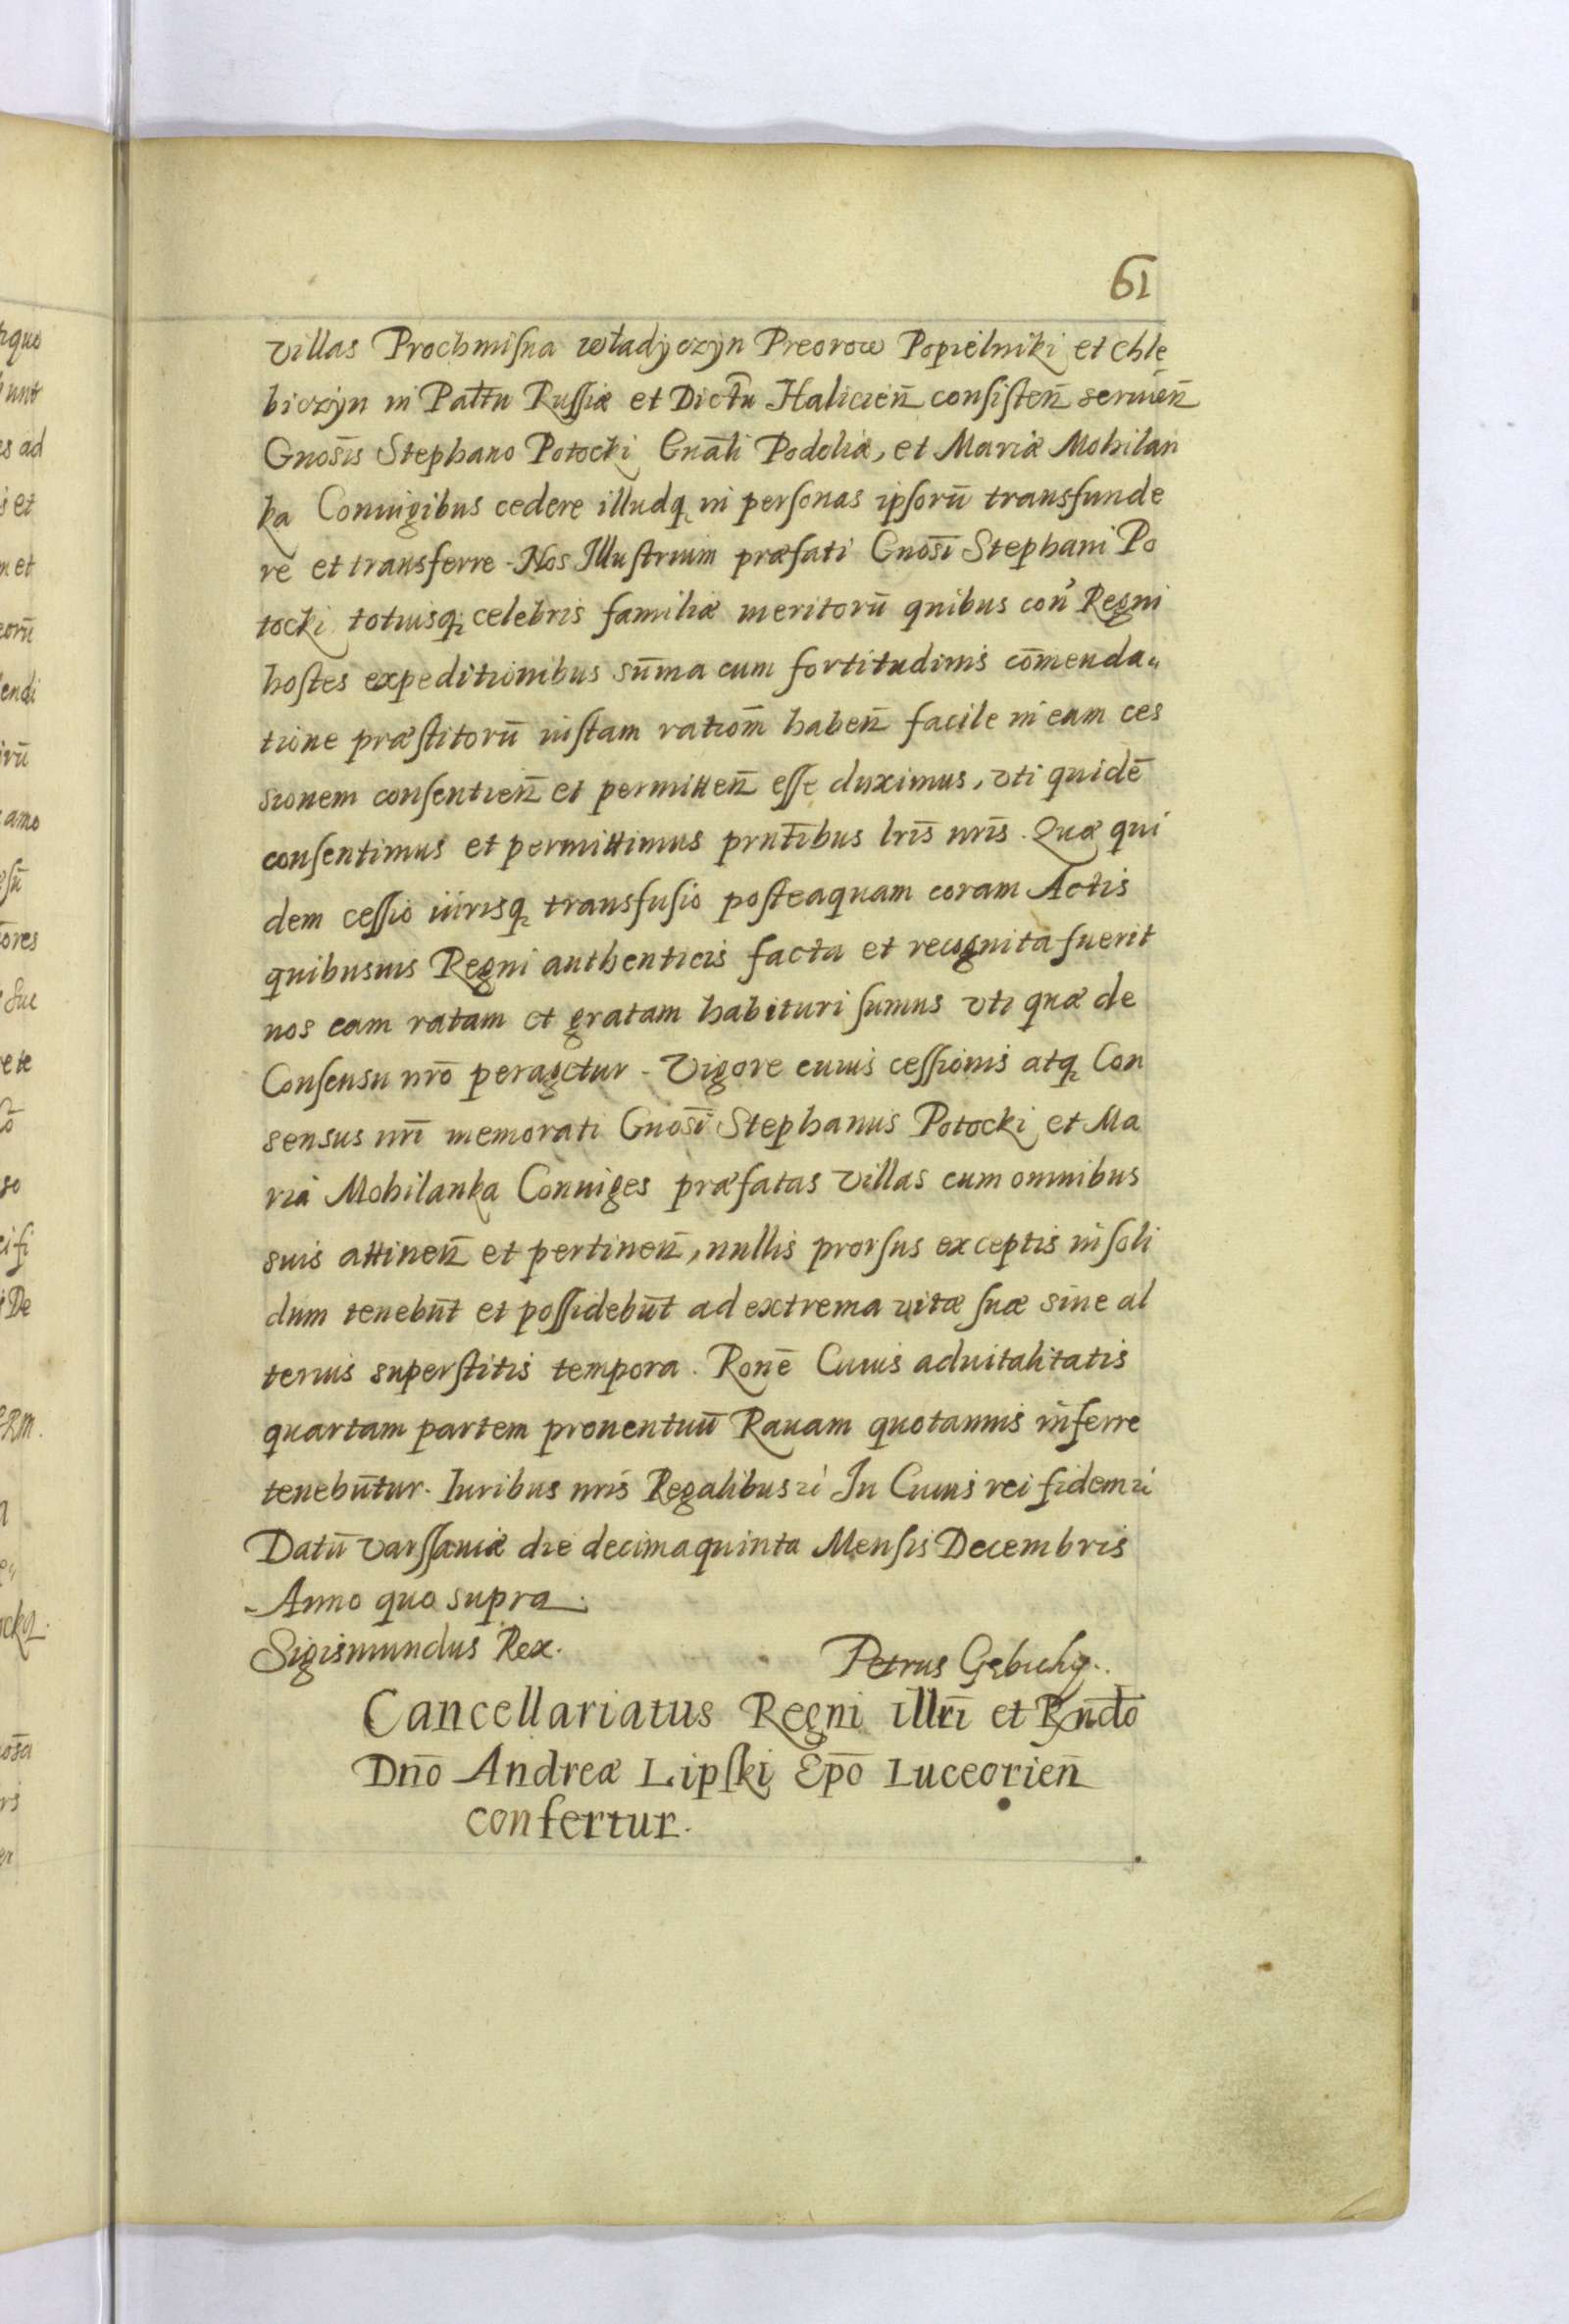 61
villas Prochmiſna władÿczÿn Preorow Popielniki et Chle
biczÿn in Pałtu Ruſſiæ et Dictu Halicien̄ consiſten̄ seruien̄
Gnosis Stephano Potocki Gnali Podoliæ, et Mariæ Mohilan
ka Coniugibus cedere illudq in perſonas ipſorū transfunde
re et transferre. Nos Illuſtrium præfati Gnosi Stephani Po
tocki totiusq celebris familiæ meritorū quibus con̄ Regni
hoſtes expeditionibus sūma cum fortitudinis cōmenda„
tione præſtitorū iuſtam ratiom̄ haben̄ facile in eam ces
sionem conſentien̄ et permitten̄ eſſe duximus, vti quidē
conſentimus et permittimus prntibus lris nris. Quæ qui
dem ceſſio iurisq transfuſio poſteaquam coram Actis
quibusuis Regni authenticis facta et recognita fuerit
nos eam ratam et gratam habituri ſumus vti quæ de
Conſensu nro peragetur. Vigore cuius ceſſionis atq Con
sensus nri memorati Gnosi Stephanus Potocki et Ma
ria Mohilanka Coniuges præfatas villas cum omnibus
suis attinen̄ et pertinen̄, nullis prorſus exceptis in ſoli
dum tenebūt et poſſidebūt ad extrema vitæ ſuæ siue al
terius superſtitis tempora. Ronē Cuius aduitalitatis
quartam partem prouentuū Rauam quotannis inferre
tenebūtur. Iuribus nris Regalibus zi In Cuius rei fidem zi
Datū varſſauiæ die decima quinta Menſis Decembris
Anno quo supra.
Sigismundus Rex.
Petrus Gębicky.
Cancellariatus Regni illri et Rndo
Dno Andreæ Lipſki Epō Luceorien̄
confertur.